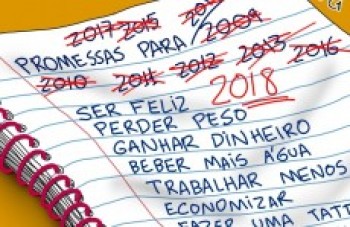 2017 2015
PROMESSAS PARA 2009
2010 2011 2012 2013 2016
2018
SER FELIZ
PERDER PESO
GANHAR DINHEIRO
BEBER MAIS ÁGUA
TRABALHAR MENOS
ECONOMIZAR
FAZER UMA TATT